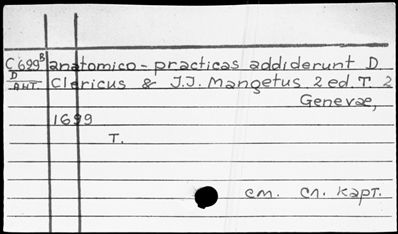 C699ᴮ anatomico-practicas addiderunt D.
D/АНТ. Clericus & J.J. Mangetus. 2 ed. T. 2
Genevæ,
1699
T.
см. сл. карт.